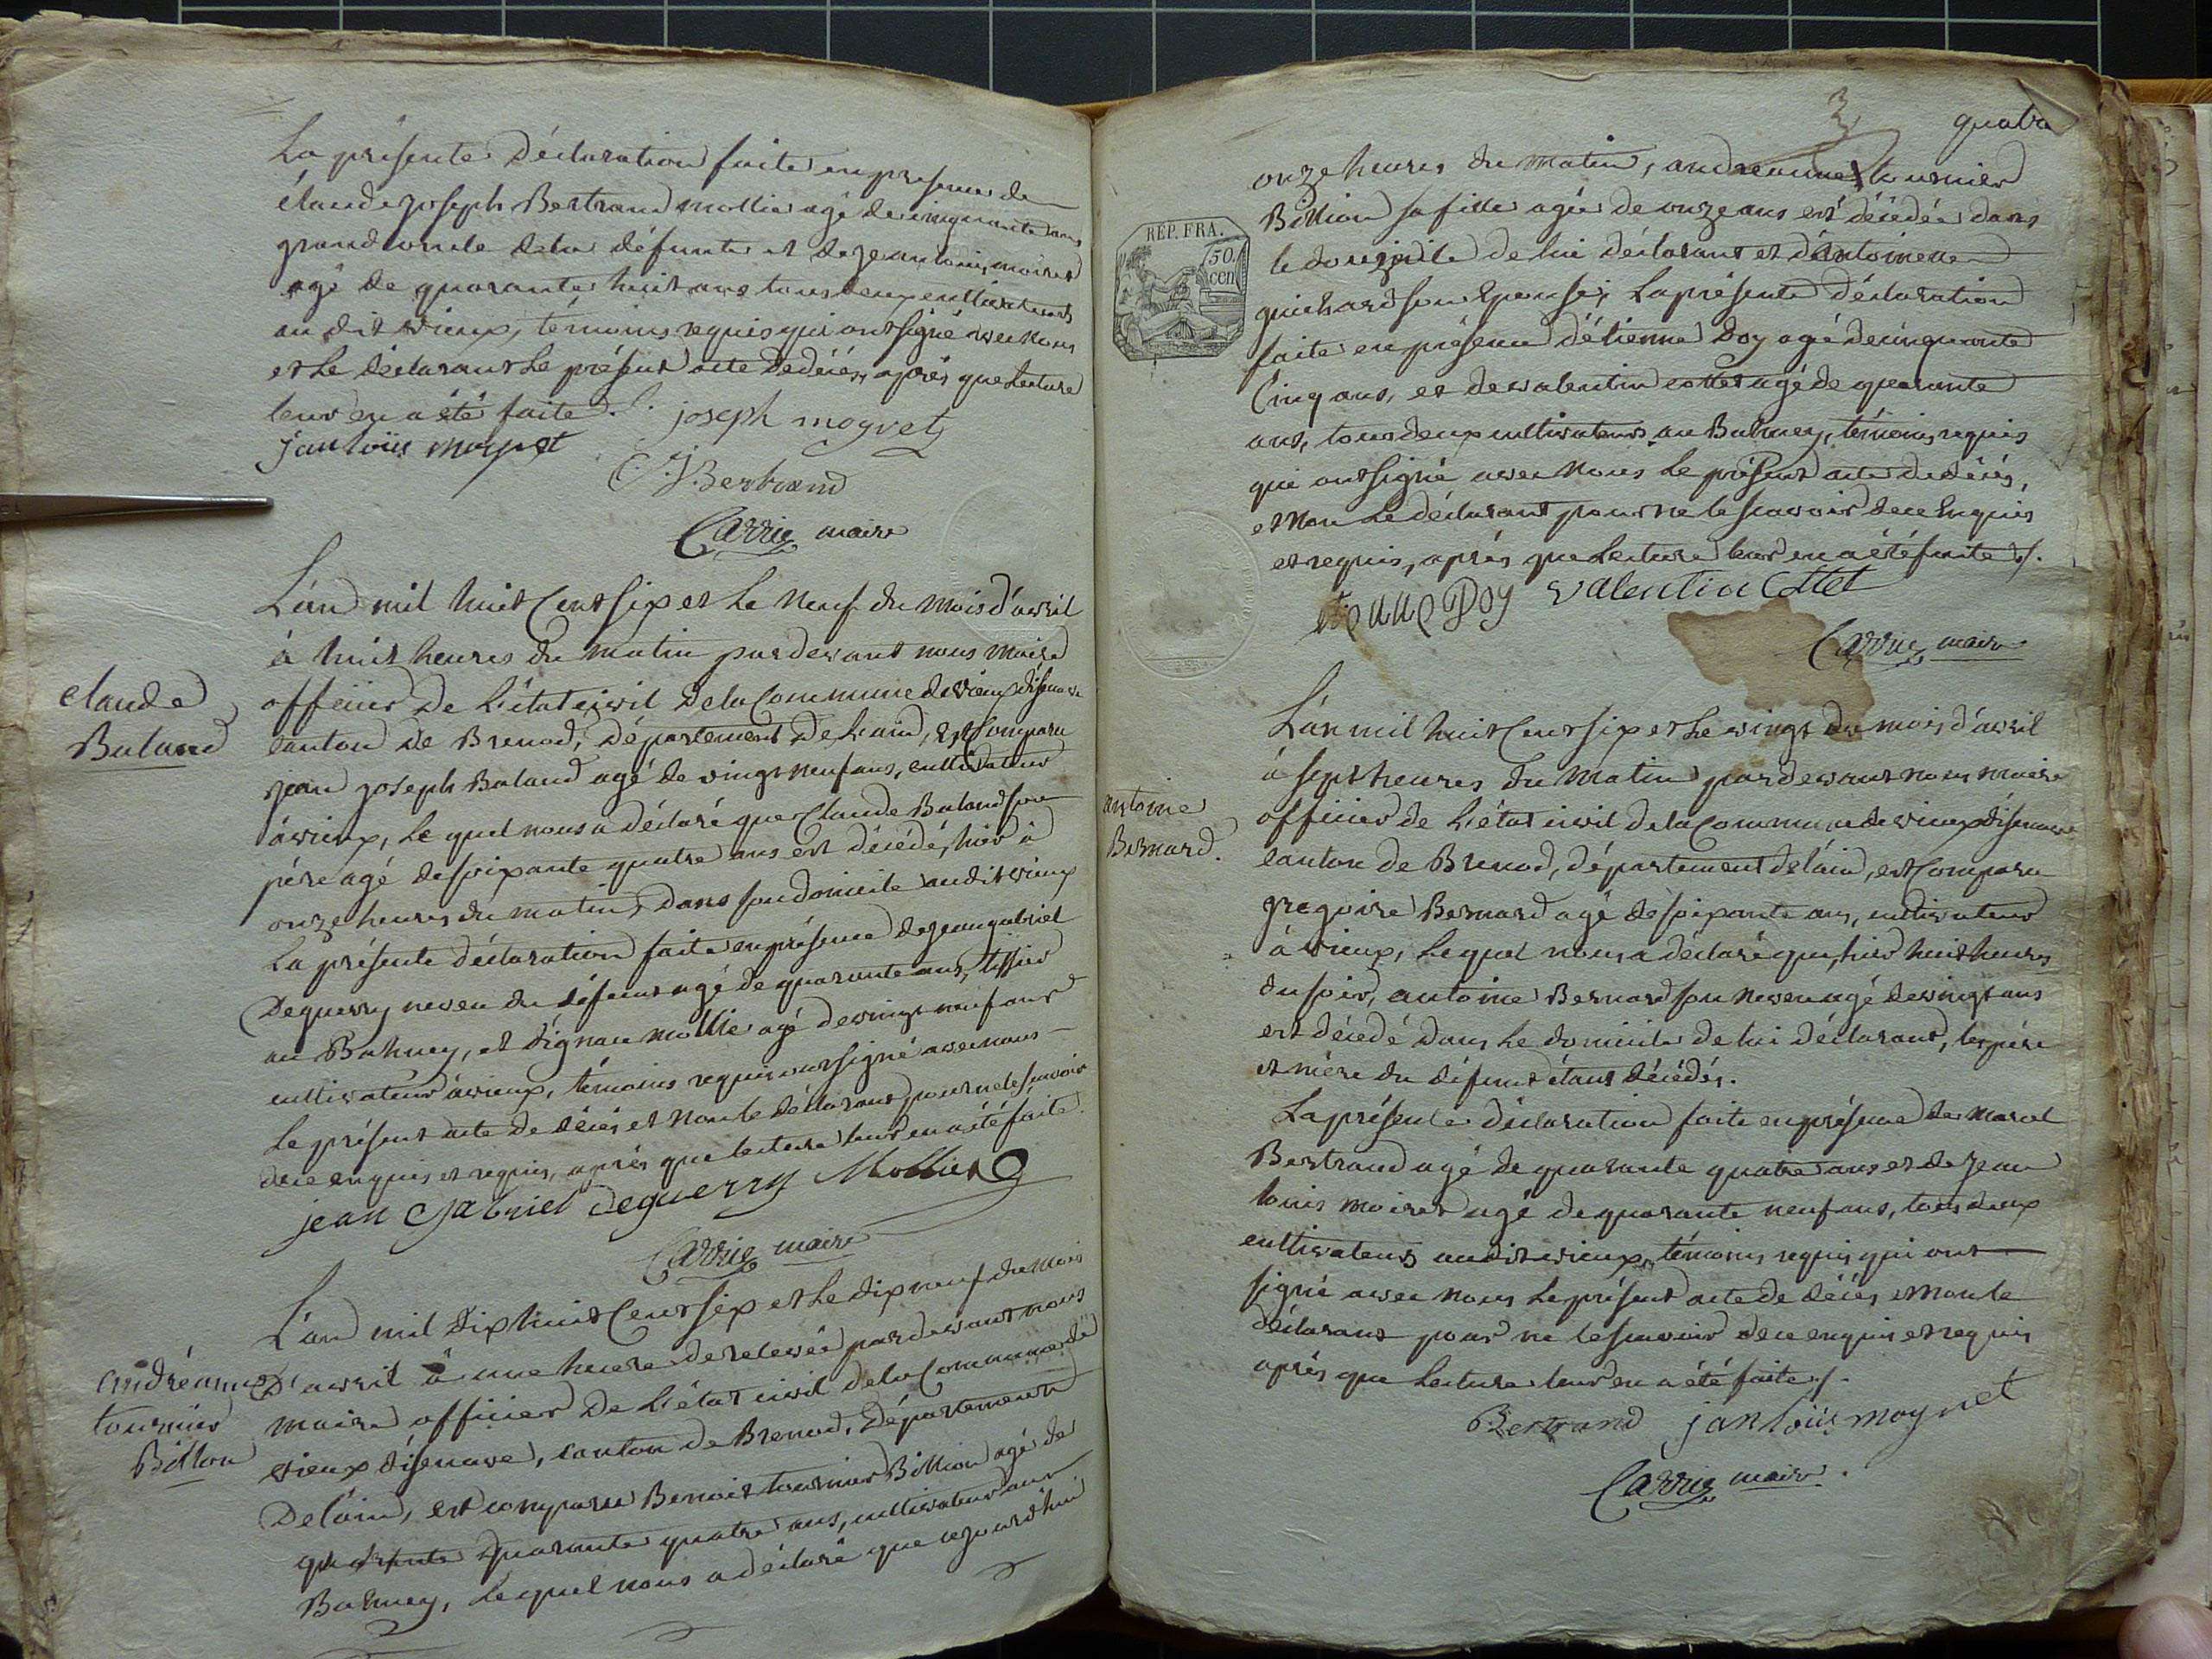 La présente déclaration faite en présence de
Claude Joseph Bertrand mollie agé de cinquante ans
grand oncle de la défunte et de jean louis moiret
agé de quarante huit ans tous deux cultivateurs
au dit vieux, témoins requis qui ont signé avec nous
et le déclarant le présent acte de décés, après que lecture
leur en a été faite ./.
joseph moyret
jan loüis moynet
C. J. Bertrand
Carrie maire
L'an mil huit Cent six et le neuf du mois d'avril
à huit heures du matin pardevant nous maire
officier de L'état civil de la Commune de vieux disenave
canton de Brenod, département de L'ain, est Comparu
jean joseph Baland agé de vingt neuf ans, cultivateur
à vieux, le quel nous a déclaré que Claude Baland son
père agé de soixante quatre ans est décédé, hier à
onze heures du matin, dans son domicile audit vieux
La présente déclaration faite en présence de jean gabriel
Deguerry neveu du défunt agé de quarante ans, tissier
au Balmey, et d'ignace mollie agé de vingt neuf ans
cultivateur à vieux, témoins requis ont signé avec nous
Le présent acte de décés et non le déclarant pour ne le scavoir
de ce enquis et requis, après que lecture leur en a été faite.
jean Gabriel deguerry Mollie
Carrie maire
claude
Baland
L'an mil dix huit Cent six et le dix neuf du mois
d'avril à une heure de relevée pardevant nous
maire officier de L'état civil de la Commune de
vieux disenave, canton de Brenod, département
de l'ain, est comparu Benoit tournier Billion agé de
quarante quarante quatre ans, cultivateur au
Balmey, Le quel nous a déclaré que aujourd'hui
andréanne
tournier
Billon
3
quatre
REP. FRA.
50
cen
onze heures du matin, andréanne tournier
Billion sa fille agée de onze ans est décédée dans
le domicile de lui déclarant et d'antoinette
guichard son Epouse; La présente déclaration
faite en présence d'étienne Doy agé de cinquante
Cinq ans, et de valentin cottet agé de quarante
ans, tous deux cultivateurs au Balmey, témoins requis
qui ont signé avec nous le présent acte de décés,
et non le déclarant pour ne le scavoir de ce Enquis
et requis, après que Lecture leur en a été faite ./.
etienne Doy valentin Cottet
Carrie maire
L'an mil huit Cent six et le vingt du mois d'avril
à sept heures du matin pardevant nous maire
officier de L'état civil de la Commune de vieux disenave
canton de Brenod, département de l'ain, est Comparu
gregoire Bernard agé de soixante ans, cultivateur
à vieux, Le quel nous a déclaré que, hier huit heures
du soir, antoine Bernard son neveu agé de vingt ans
est décédé dans le domicile de lui déclarant, les père
et mère du défunt étant décédés.
La présente déclaration faite en présence de marcel
Bertrand agé de quarante quatre ans et de jean
louis moiret agé de quarante neuf ans, tous deux
cultivateurs audit vieux, témoins requis qui ont
signé avec nous le présent acte de décés et non le
déclarant pour ne le scavoir de ce enquis et requis
après que Lecture leur en a été faite ./.
Bertrand jan loüis moynet
Carrie maire.
antoine
Bernard.